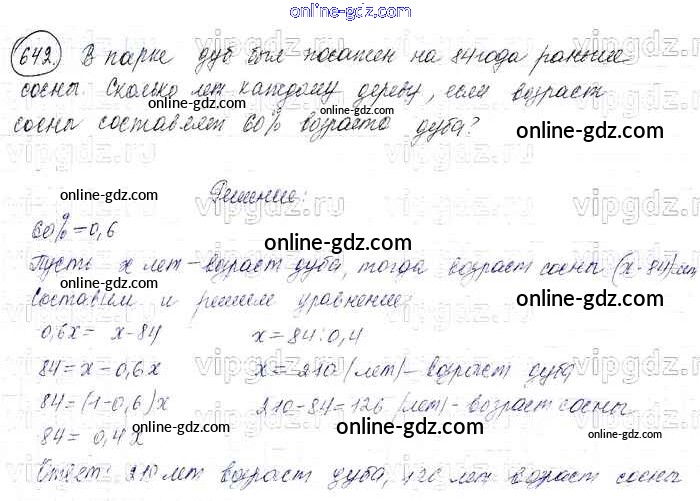 online-gdz.com
642. В парке дуб был посажен на 84 года раньше
сосны. Сколько лет каждому дереву, если возраст
сосны составляет 60% возраста дуба?
online-gdz.com
vipgdz.ru
online-gdz.com
Решение:
60%=0,6
online-gdz.com
Пусть x лет – возраст дуба, тогда возраст сосны (x-84) лет
Составим и решим уравнение:
online-gdz.com
0,6x = x-84 x = 84:0,4
84 = x - 0,6x x = 210 (лет) – возраст дуба
84 = (1-0,6)x 210-84=126 (лет) - возраст сосны
84 = 0,4x
online-gdz.com
online-gdz.com
Ответ: 210 лет возраст дуба, 126 лет возраст сосны